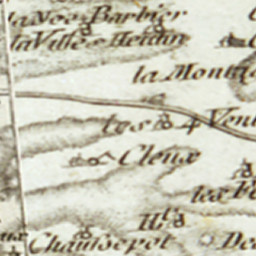 la Noe Barbier
la Ville Heslin
la Monta
les
Vent
Cleux
les Fo
H.t
Chaussepot
De